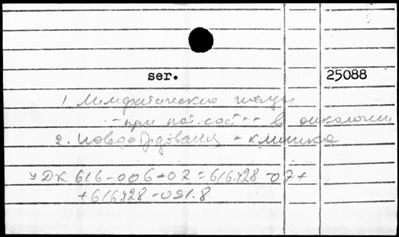 ser. 25088
1. Лимфатические узлы
-- при пат. сост. -- в онкологии
2. Новообразования - клиника
УДК 616-006-02 = 616.428-07+
+616.428-091.8